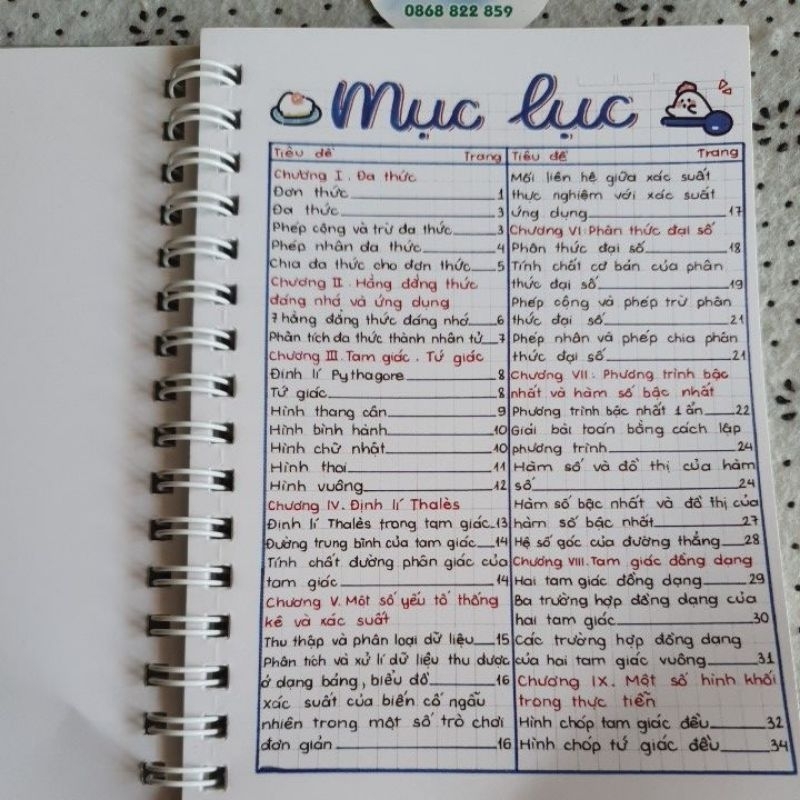 0868 822 859
Mục lục
Tiêu đề Trang
Chương I. Đa thức
Đơn thức 1
Đa thức 3
Phép cộng và trừ đa thức 3
Phép nhân đa thức 4
Chia đa thức cho đơn thức 5
Chương II. Hằng đẳng thức
đáng nhớ và ứng dụng
7 hằng đẳng thức đáng nhớ 6
Phân tích đa thức thành nhân tử 7
Chương III. Tam giác. Tứ giác
Định lí Pythagore 8
Tứ giác 8
Hình thang cân 9
Hình bình hành 10
Hình chữ nhật 10
Hình thoi 11
Hình vuông 12
Chương IV. Định lí Thalès
Định lí Thalès trong tam giác 13
Đường trung bình của tam giác 14
Tính chất đường phân giác của
tam giác 14
Chương V. Một số yếu tố thống
kê và xác suất
Thu thập và phân loại dữ liệu 15
Phân tích và xử lí dữ liệu thu được
ở dạng bảng, biểu đồ 16
xác suất của biến cố ngẫu
nhiên trong một số trò chơi
đơn giản 16
Tiêu đề Trang
Mối liên hệ giữa xác suất
thực nghiệm với xác suất
ứng dụng 17
Chương VI. Phân thức đại số
Phân thức đại số 18
Tính chất cơ bản của phân
thức đại số 19
Phép cộng và phép trừ phân
thức đại số 21
Phép nhân và phép chia phân
thức đại số 21
Chương VII: Phương trình bậc
nhất và hàm số bậc nhất
Phương trình bậc nhất 1 ẩn 22
Giải bài toán bằng cách lập
phương trình 24
Hàm số và đồ thị của hàm
số 24
Hàm số bậc nhất và đồ thị của
hàm số bậc nhất 27
Hệ số góc của đường thẳng 28
Chương VIII. Tam giác đồng dạng
Hai tam giác đồng dạng 29
Ba trường hợp đồng dạng của
hai tam giác 30
Các trường hợp đồng dạng
của hai tam giác vuông 31
Chương IX. Một số hình khối
trong thực tiễn
Hình chóp tam giác đều 32
Hình chóp tứ giác đều 34